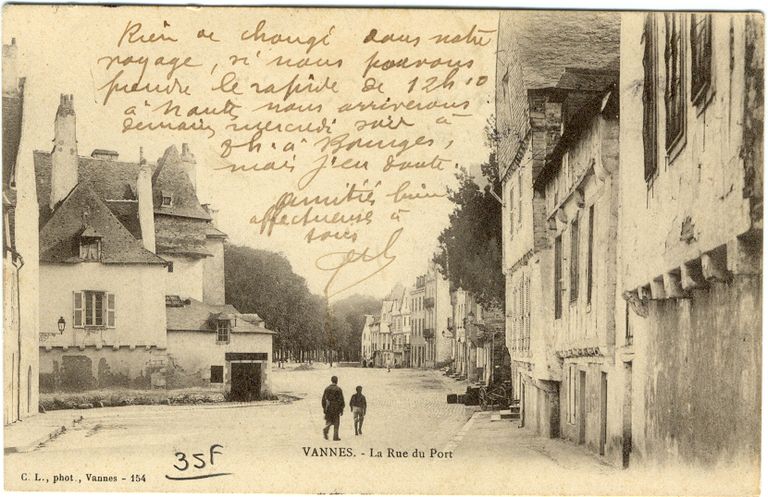 Rien de changé dans notre
voyage, si nous pouvons
prendre le rapide de 12h10
à Nantes nous arriverons
demain mercredi soir à
8h. à Bourges,
mais j'en doute.
Amitiés bien
affectueuses à
tous
VANNES. - La Rue du Port
C. L., phot., Vannes - 154
35F